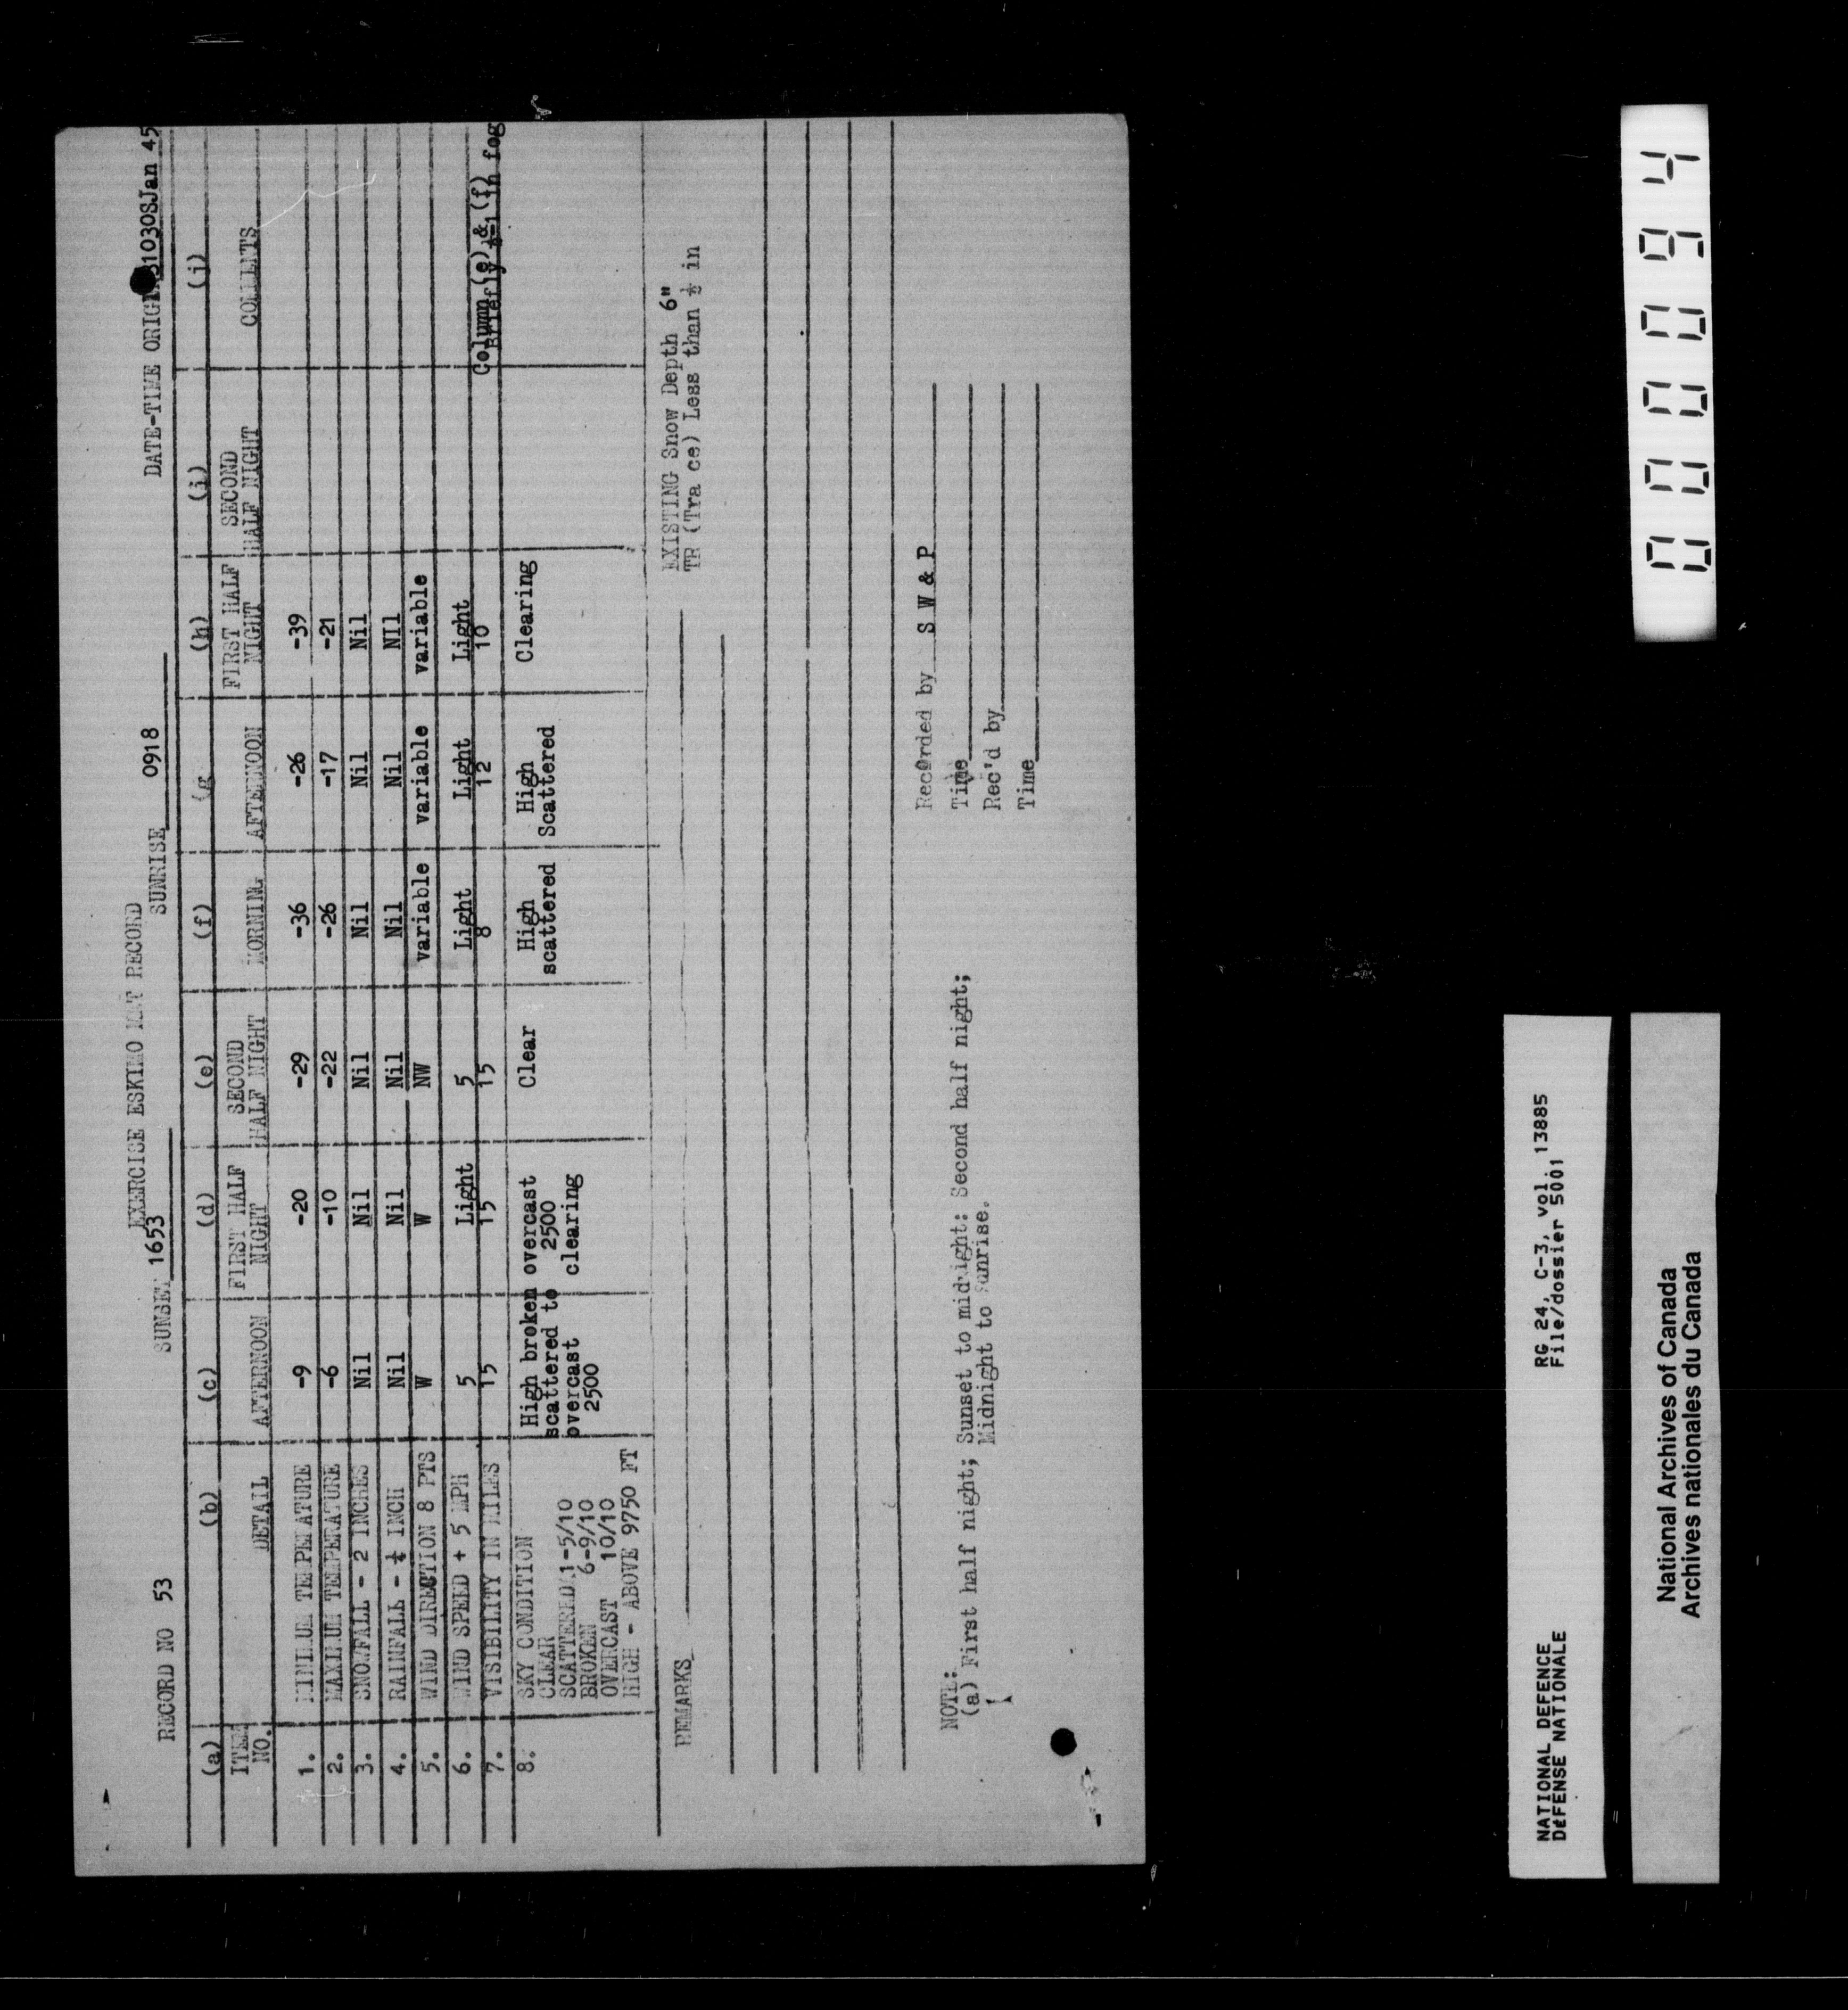 EXERCISE ESKIMO MET RECORD
RECORD NO 53 SUNSET 1653 SUNRISE 0918 DATE-TIME ORIGIN 311030SJan 45
(a) (b) (c) (d) (e) (f) (g (h) (i) (j)
ITEM NO. DETAIL AFTERNOON FIRST HALF NIGHT SECOND HALF NIGHT MORNING AFTERNOON FIRST HALF NIGHT SECOND HALF NIGHT COMMENTS
1. MINIMUM TEMPERATURE -9 -20 -29 -36 -26 -39
2. MAXIMUM TEMPERATURE -6 -10 -22 -26 -17 -21
3. SNOWFALL - 2 INCHES Nil Nil Nil Nil Nil Nil
4. RAINFALL - ¼ INCH Nil Nil Nil Nil Nil NIl
5. WIND DIRECTION 8 PTS W W NW variable variable variable
6. WIND SPEED + 5 MPH 5 Light 5 Light Light Light
7. VISIBILITY IN MILES 15 15 15 8 12 10 Column (e) & (f) Briefly ½-1 in fog
8. SKY CONDITION High broken overcast Clear High High Clearing
CLEAR scattered to 2500 scattered Scattered
SCATTERED 1-5/10 overcast clearing
BROKEN 6-9/10 2500
OVERCAST 10/10
HIGH - ABOVE 9750 FT
REMARKS EXISTING Snow Depth 6"
TR (Tra ce) Less than ½ in
Recorded by S W & P
Time
Rec'd by
Time
NOTE:
(a) First half night; Sunset to midnight: Second half night;
Midnight to Sunrise.
NATIONAL DEFENCE RG 24, C-3, vol. 13885
DÉFENSE NATIONALE File/dossier 5001
National Archives of Canada
Archives nationales du Canada
0000094